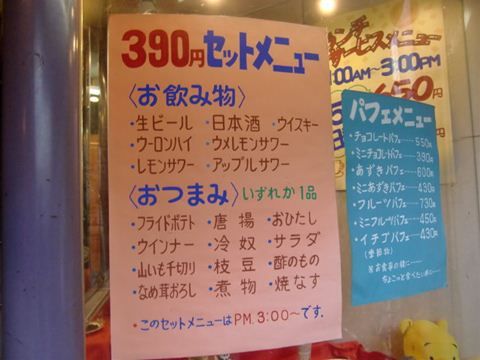 390円セットメニュー
〈お飲み物〉
・生ビール ・日本酒 ・ウイスキー
・ウーロンハイ ・ウメレモンサワー
・レモンサワー ・アップルサワー
〈おつまみ〉いずれか1品
・フライドポテト ・唐揚 ・おひたし
・ウインナー ・冷奴 ・サラダ
・山いも千切り ・枝豆 ・酢のもの
・なめ茸おろし ・煮物 ・焼なす
・このセットメニューはPM.3:00〜です.
サービスメニュー
:00AM〜3:00PM
650円
パフェメニュー
・チョコレートパフェ----550円
・ミニチョコレートパフェ--390円
・あずきパフェ----600円
・ミニあずきパフェ---430円
・フルーツパフェ----730円
・ミニフルーツパフェ---450円
・イチゴパフェ---430円
(季節物)
※お食事の後に----
ちょこっと食べたい席に----